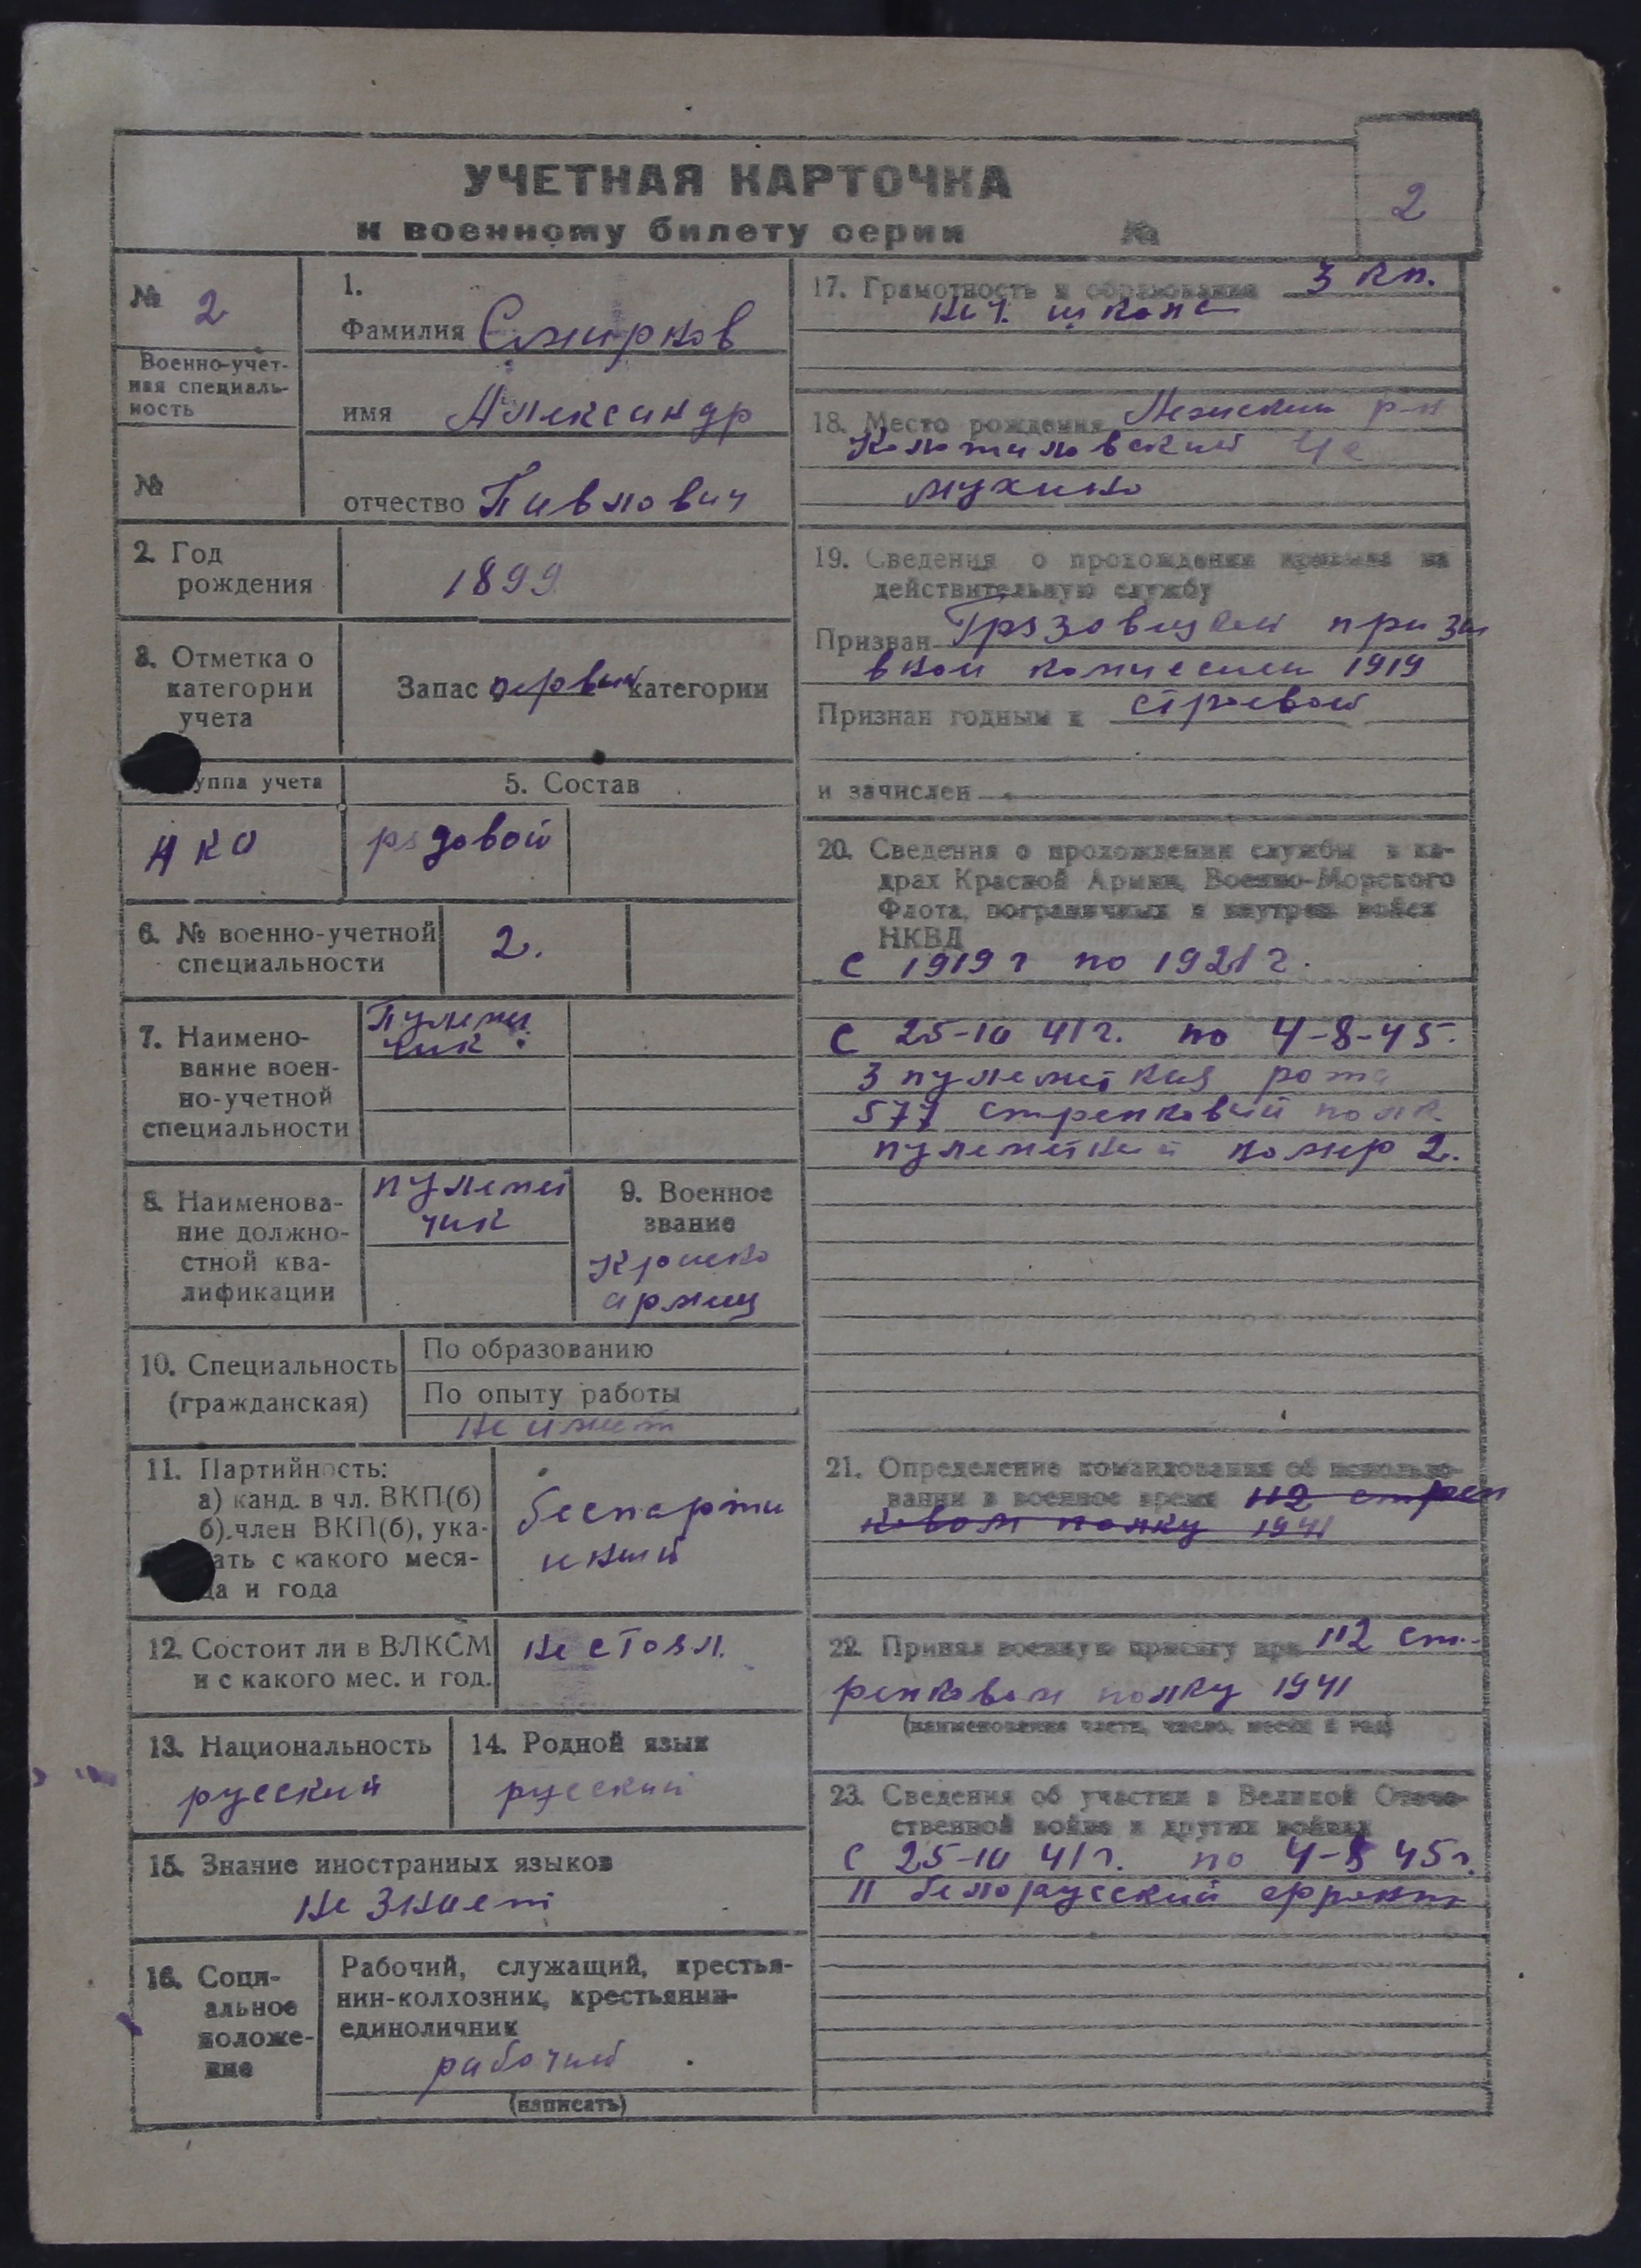 УЧЕТНАЯ КАРТОЧКА
к военному билету серии №
2
№ 2
Военно-учет-
ная специаль-
ность
№
1.
Фамилия Смирнов
имя Александр
отчество Павлович
2. Год
рождения
1899
3. Отметка о
категории
учета
Запас первой категории
уппа учета
5. Состав
рядовой
6. № военно-учетной
специальности
2.
7. Наимено-
вание воен-
но-учетной
специальности
Пулемет
чик
8. Наименова-
ние должно-
стной ква-
лификации
пулемет
чик
9. Военное
звание
Красно
армеец
10. Специальность
(гражданская)
По образованию
По опыту работы
не имеет
11. Партийность:
а) канд. в чл. ВКП(б)
б) член ВКП(б), ука-
ать с какого меся-
ца и года
беспарти
иный
12. Состоит ли в ВЛКСМ
и с какого мес. и год.
не стоял.
13. Национальность
русский
14. Родной язык
русский
15. Знание иностранных языков
не знает
16. Соци-
альное
положе-
ние
Рабочий, служащий, крестья-
нин-колхозник, крестьянин-
единоличник
рабочий
(написать)
17. Грамотность и образование 3 кл.
нач. школа
18. Место рождения р-н
мухино
19. Сведения о прохождении призыва на
действительную службу
Призван Грязовецкой призы
вной комиссии 1919
Признан годным к строевой
и зачислен
20. Сведения о прохождении службы в ка-
драх Красной Армии, Военно-Морского
Флота, пограничных и внутрен войск
НКВД
с 1919 г по 1921 г.
с 25-10 41 г. по 4-8-45.
3 пулеметная рота
577 стрелковый полк
пулеметный номер 2.
21. Определение командования об использо-
вании в военное время 112 стрел
ковом полку 1941
22. Принял военную присягу при 112 ст-
релковом полку 1941
(наименование части, число, месяц и год)
23. Сведения об участии в Великой Отече-
ственной войне и других войнах
с 25-10 41 г. по 4-8 45 г.
II белорусский фронт